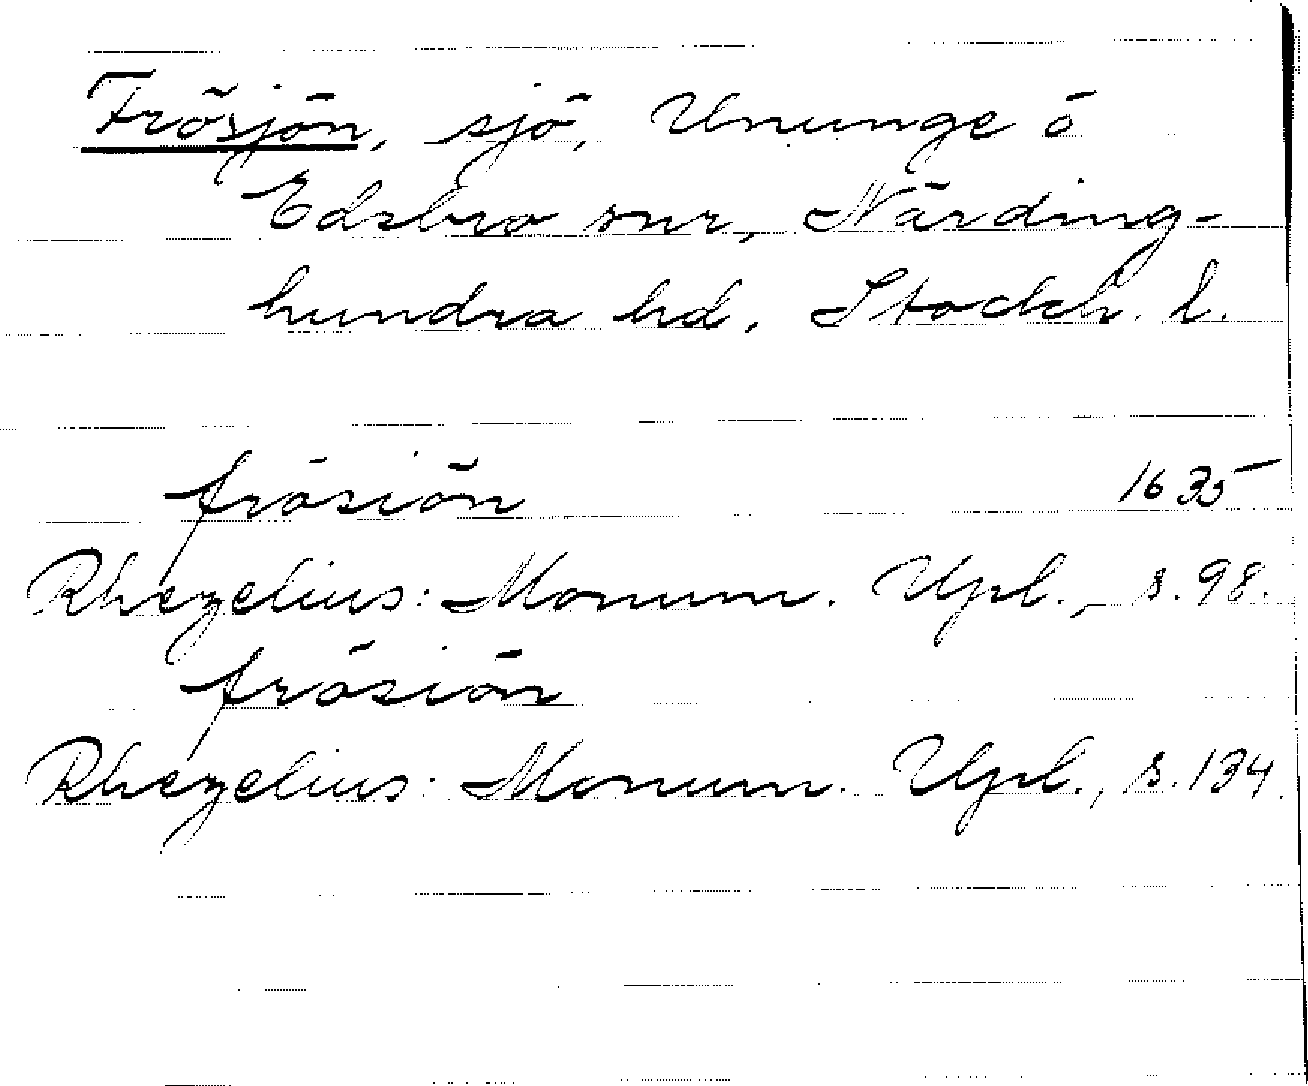 Frösjön, sjö, Ununge o
Edsbro snr, Närding-
hundra hd. Stockh. l.
frösiön 1635
Rhezelius: Monum. Upl., s. 98.
frösiön
Rhezelius: Monum. Upl., s. 134.